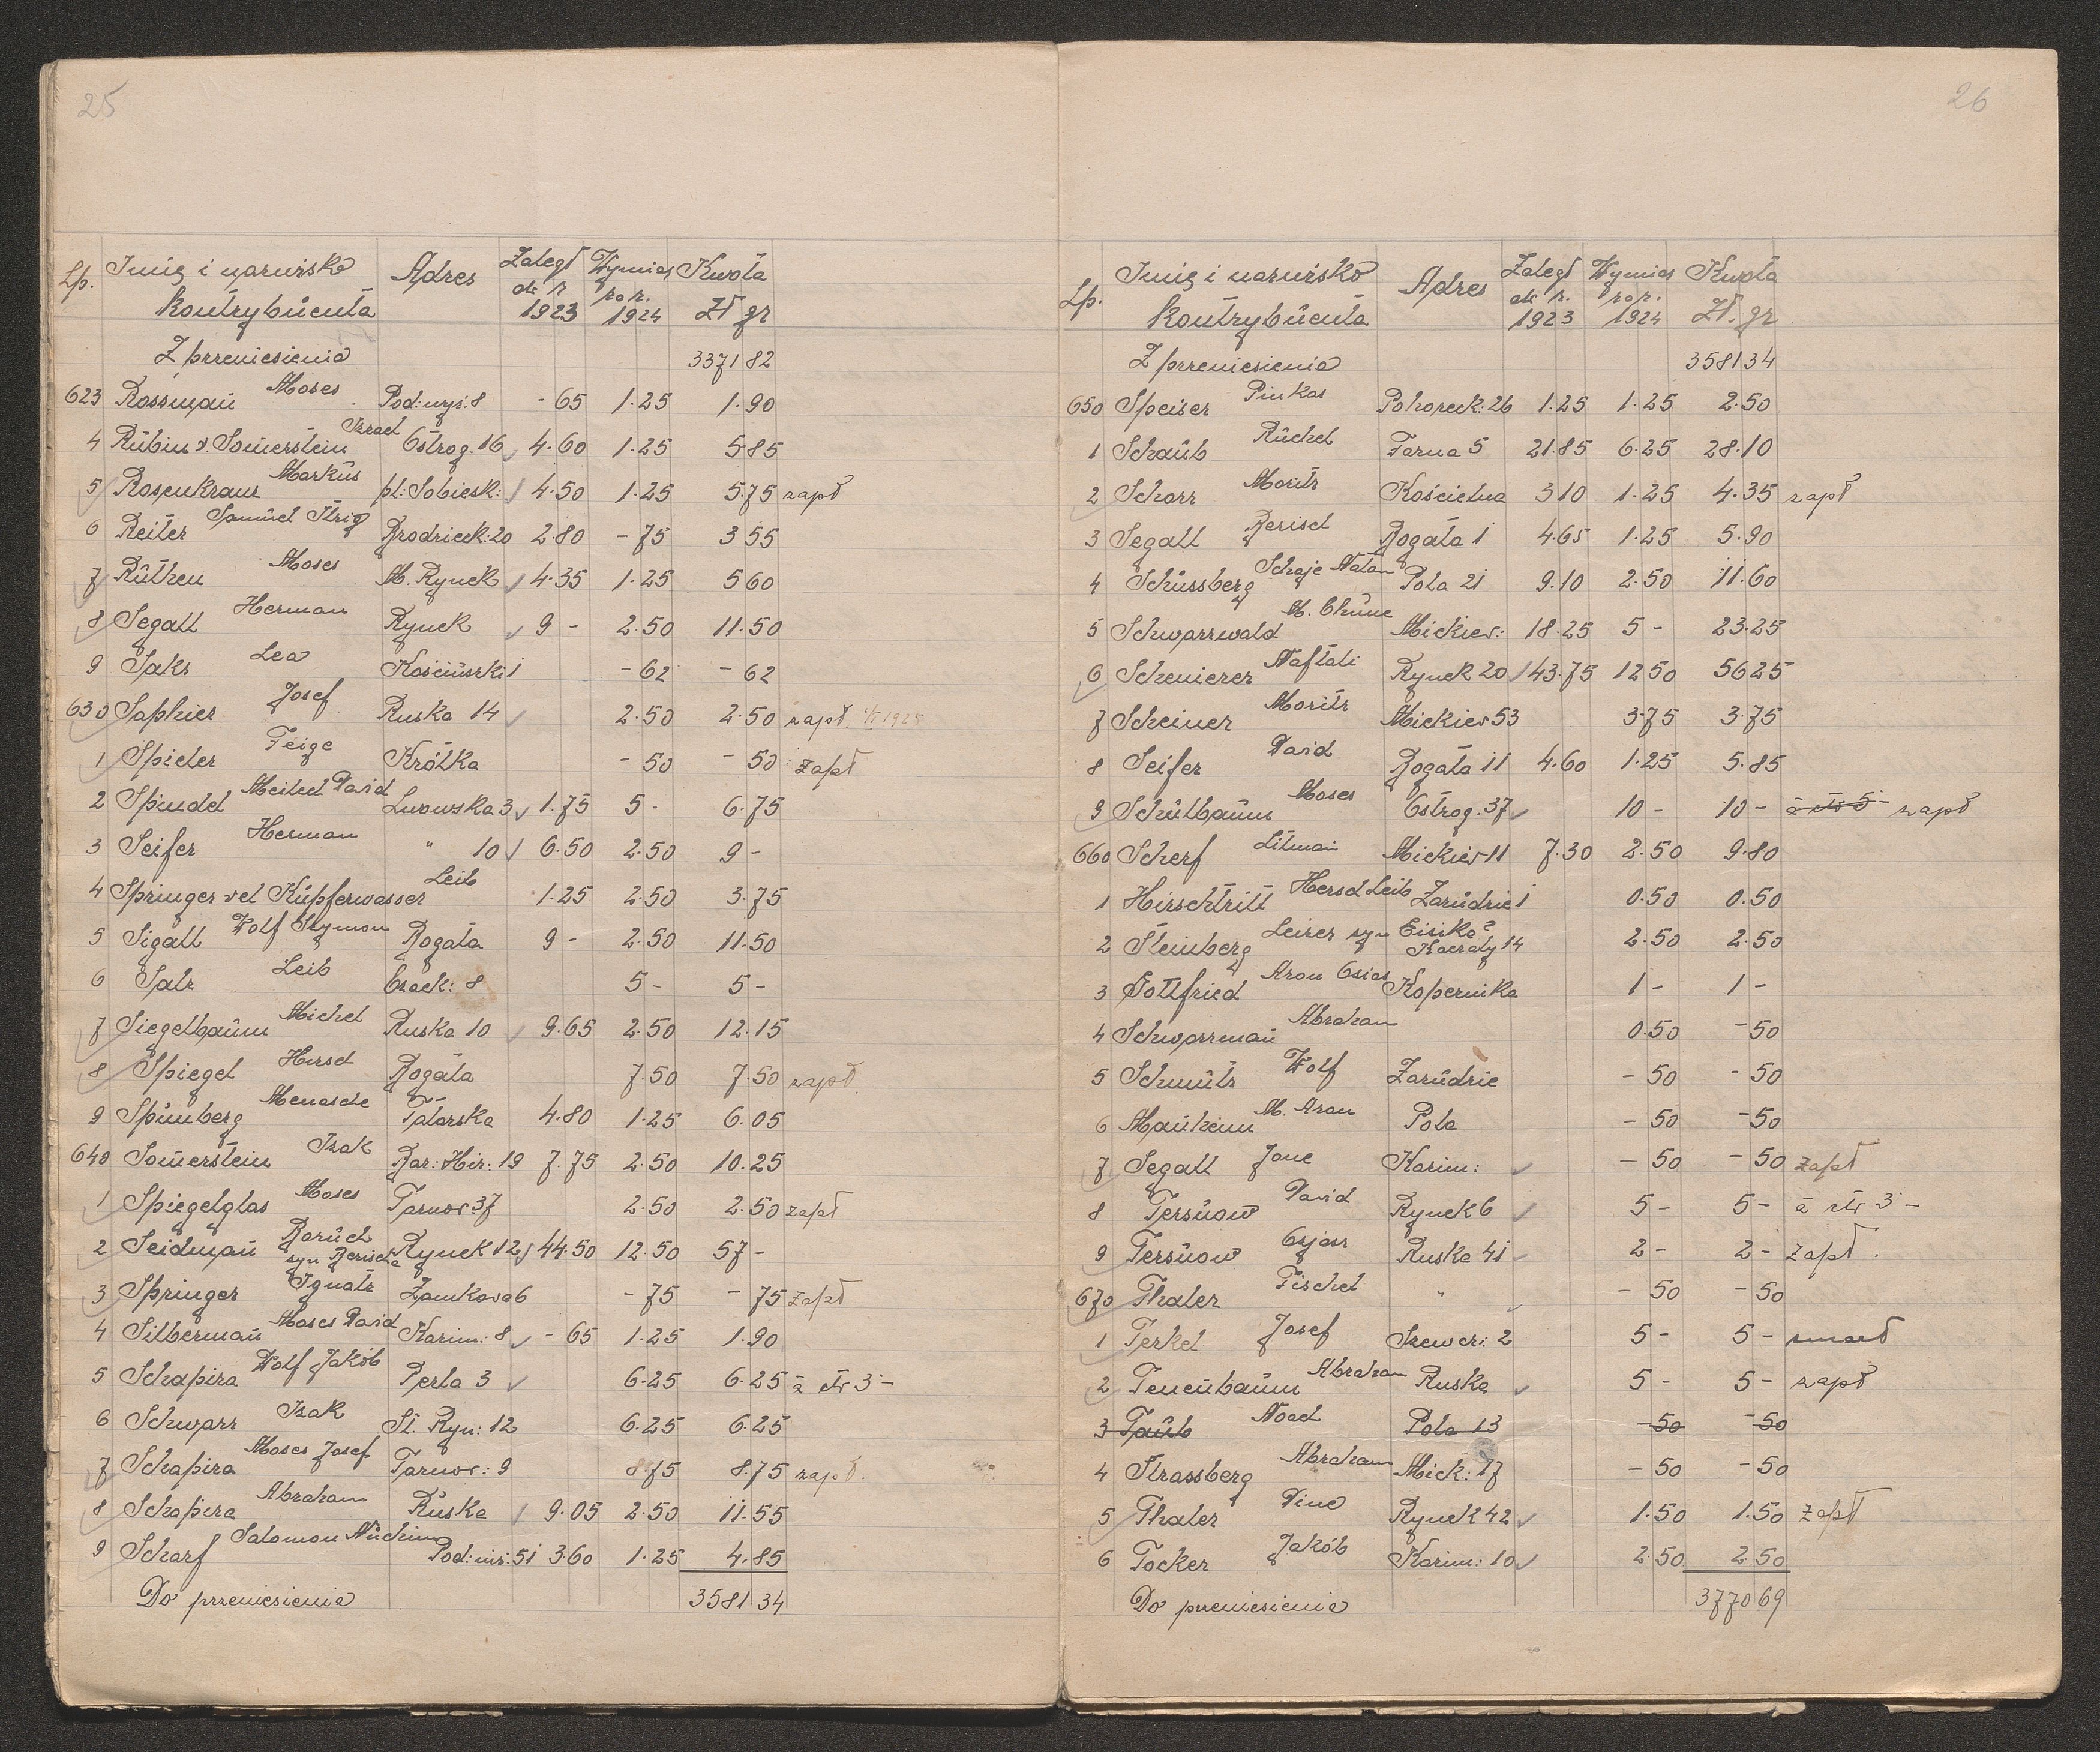 25
Lp. Imię i nazwisko kontrybuenta Adres Zaległ. do r. 1923 Wymiar za r. 1924 Kwota Zł gr
Z przeniesienia 3371 82
623 Rossman Moses Pod: wyż: 8 - 65 1·25 1·90
4 Rubin v. Somerstein Izrael Ostrog. 16 4·60 1·25 5 85
5 Rosenkranz Markus pl: Sobiesk: 4·50 1·25 5·75 zapł
6 Reiter Samuel Brodzieck: 20 2·80 - 75 3 55
7 Ruthen Moses M. Rynek 4·35 1·25 5 60
8 Segall Herman Rynek 9 - 2·50 11·50
9 Saks Lea Kościuszki 1 - 62 - 62
630 Saphier Josef Ruska 14 2·50 2·50 zapł.
1 Spieler Feige Krótka - 50 - 50 zapł
2 Spindel Meilech David Lwowska 3 1·75 5 - 6·75
3 Seifer Herman " 10 6·50 2·50 9 -
4 Springer vel Kupferwasser Leib 1·25 2·50 3·75
5 Sigall Wolf Szymon Bogata 9 - 2·50 11·50
6 Salz Leib Czack: 8 5 - 5 -
7 Siegelbaum Michel Ruska 10 9·65 2·50 12·15
8 Spiegel Hersch Bogata 7·50 7·50 zapł.
9 Spinberg Menasche Tatarska 4·80 1·25 6·05
640 Somerstein Izak Bar: Hir: 19 7·75 2·50 10·25
1 Spiegelglas Moses Tarnow 37 2·50 2·50 zapł
2 Seidman Baruch syn Berischa Rynek 12 44·50 12·50 57 -
3 Springer Ignatz Zamkowa 6 - 75 - 75 zapł
4 Silberman Moses David Kazim: 8 - 65 1·25 1·90
5 Schapira Wolf Jakób Perla 3 6·25 6·25 à dr 3 -
6 Schwarz Izak St. Ryn: 12 6·25 6·25
7 Schapira Moses Josef Tarnow: 9 8·75 8·75 zapł.
8 Schapira Abraham Ruska 9·05 2·50 11·55
9 Scharf Salomon Nuchim Pod: niż: 51 3·60 1·25 4·85
Do przeniesienia 3581 34
26
Lp. Imię i nazwisko kontrybuenta Adres Zaległ do r. 1923 Wymiar za r. 1924 Kwota Zł. gr
Z przeniesienia 3581 34
650 Speiser Pinkas Pohoreck: 26 1·25 1·25 2·50
1 Schaub Ruchel Farna 5 21·85 6·25 28·10
2 Scharz Moritz Kościelna 3 10 1·25 4·35 zapł
3 Segall Berisch Bogata 1 4·65 1·25 5·90
4 Schussberg Schaje Natan Pola 21 9·10 2·50 11·60
5 Schwarzwald M. Chune Mickiew: 18·25 5 - 23·25
6 Schenierer Naftali Rynek 20 43·75 12 50 56 25
7 Scheiner Moritz Mickiew 53 3·75 3·75
8 Seifer David Bogata 11 4·60 1·25 5·85
9 Schulbaum Moses Ostrog. 37 10 - 10 - à dr 5 - zapł
660 Scherf Litman Mickiew 11 7·30 2·50 9·80
1 Hirschtritt Hersch Leib Zarudzie 1 0·50 0·50
2 Steinberg Leizer syn Eisika Kaeraty 14 2·50 2·50
3 Gottfried Aron Osias Kopernika 1 - 1 -
4 Schwarzman Abraham 0·50 - 50
5 Schmutz Wolf Zarudzie - 50 - 50
6 Manheim M. Aron Pola - 50 - 50
7 Segall Jone Kazim: - 50 - 50 zapł
8 Tersuow David Rynek 6 5 - 5 - à dr 3 -
9 Tersuow Osjasz Ruska 41 2 - 2 - zapł.
670 Thaler Fischel " - 50 - 50
1 Terkel Josef Szewcz: 2 5 - 5 - zmarł
2 Tenenbaum Abraham Ruska 5 - 5 - zapł
3 Taub Noach Pola 13 - 50 - 50
4 Strassberg Abraham Mick: 17 - 50 - 50
5 Thaler Dine Rynek 42 1·50 1·50 zapł
6 Tocker Jakób Kazim: 10 2·50 2·50
Do przeniesienia 3770 69